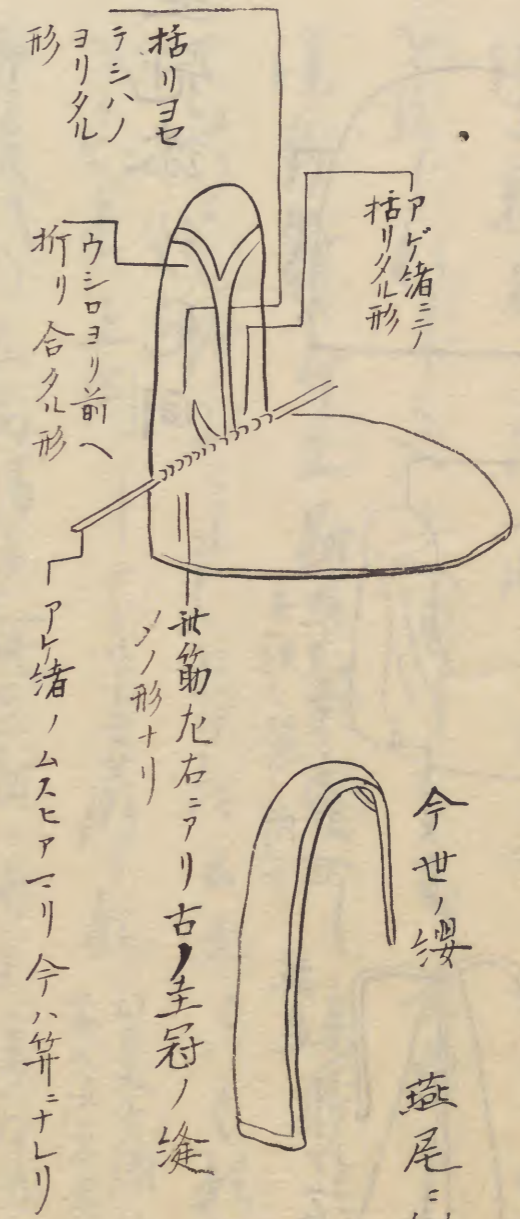 アゲ緒ニテ
括リタル形
括リヨセ
テシハノ
ヨリタル
形
ウシロヨリ前ヘ
折リ合タル形
今世ノ纓
燕尾ニ
此筋左右ニアリ古ノ圭冠ノ縫
メノ形ナリ
アゲ緒ノムスヒアマリ今ハ笄ニナレリ